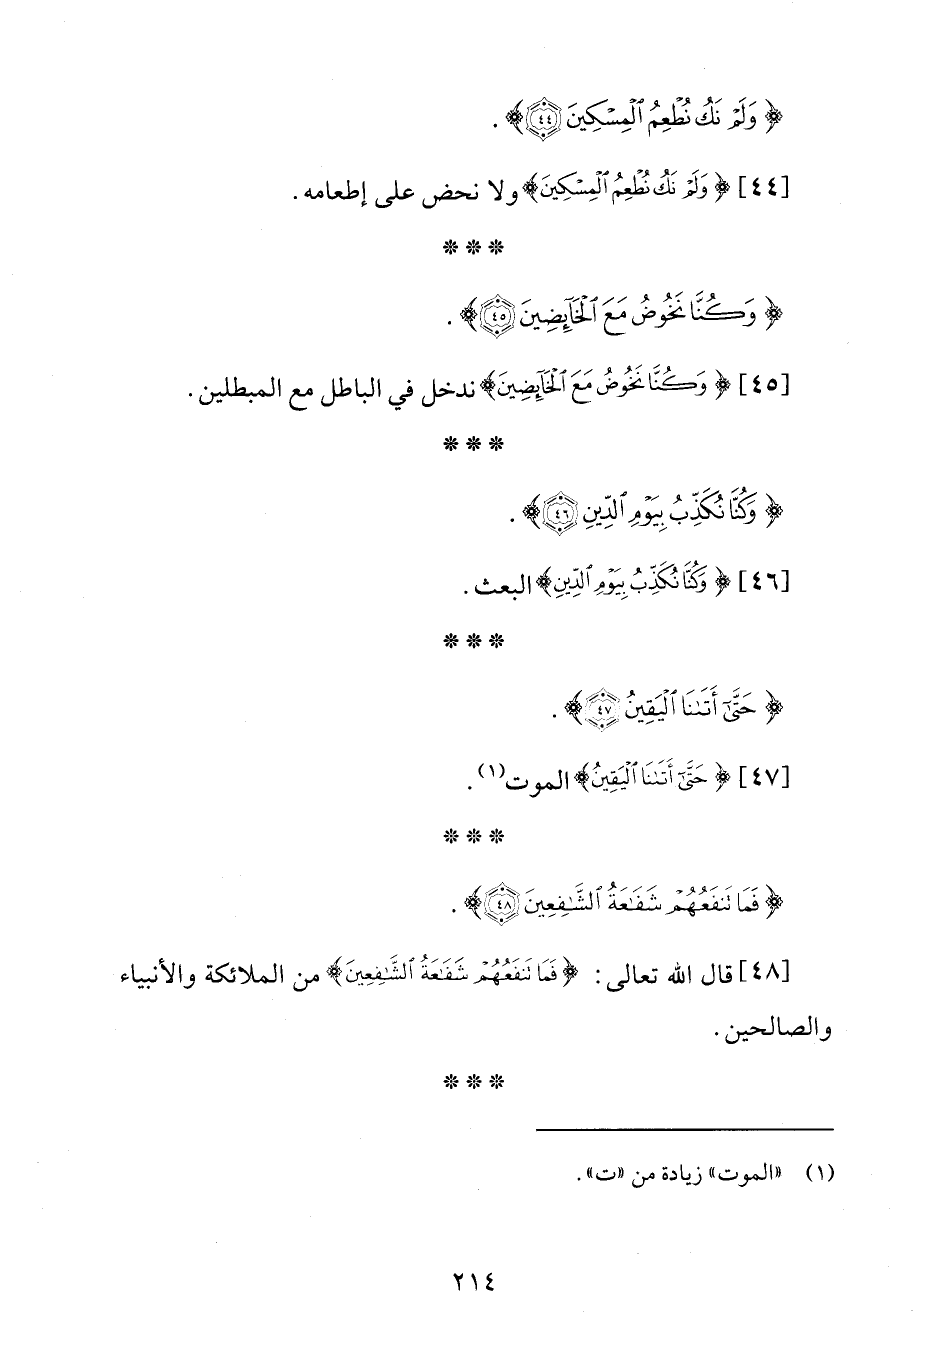 ﴿ وَلَمْ نَكُ نُطْعِمُ ٱلْمِسْكِينَ ٤٤ ﴾ .
[٤٤] ﴿ وَلَمْ نَكُ نُطْعِمُ ٱلْمِسْكِينَ ﴾ ولا نحض على إطعامه .
* * *
﴿ وَكُنَّا نَخُوضُ مَعَ ٱلْخَآئِضِينَ ٤٥ ﴾ .
[٤٥] ﴿ وَكُنَّا نَخُوضُ مَعَ ٱلْخَآئِضِينَ ﴾ ندخل في الباطل مع المبطلين .
* * *
﴿ وَكُنَّا نُكَذِّبُ بِيَوْمِ ٱلدِّينِ ٤٦ ﴾ .
[٤٦] ﴿ وَكُنَّا نُكَذِّبُ بِيَوْمِ ٱلدِّينِ ﴾ البعث .
* * *
﴿ حَتَّىٰٓ أَتَىٰنَا ٱلْيَقِينُ ٤٧ ﴾ .
[٤٧] ﴿ حَتَّىٰٓ أَتَىٰنَا ٱلْيَقِينُ ﴾ الموت(١) .
* * *
﴿ فَمَا تَنفَعُهُمْ شَفَٰعَةُ ٱلشَّٰفِعِينَ ٤٨ ﴾ .
[٤٨] قال الله تعالى : ﴿ فَمَا تَنفَعُهُمْ شَفَٰعَةُ ٱلشَّٰفِعِينَ ﴾ من الملائكة والأنبياء
والصالحين .
* * *
(١) «الموت» زيادة من «ت» .
٢١٤